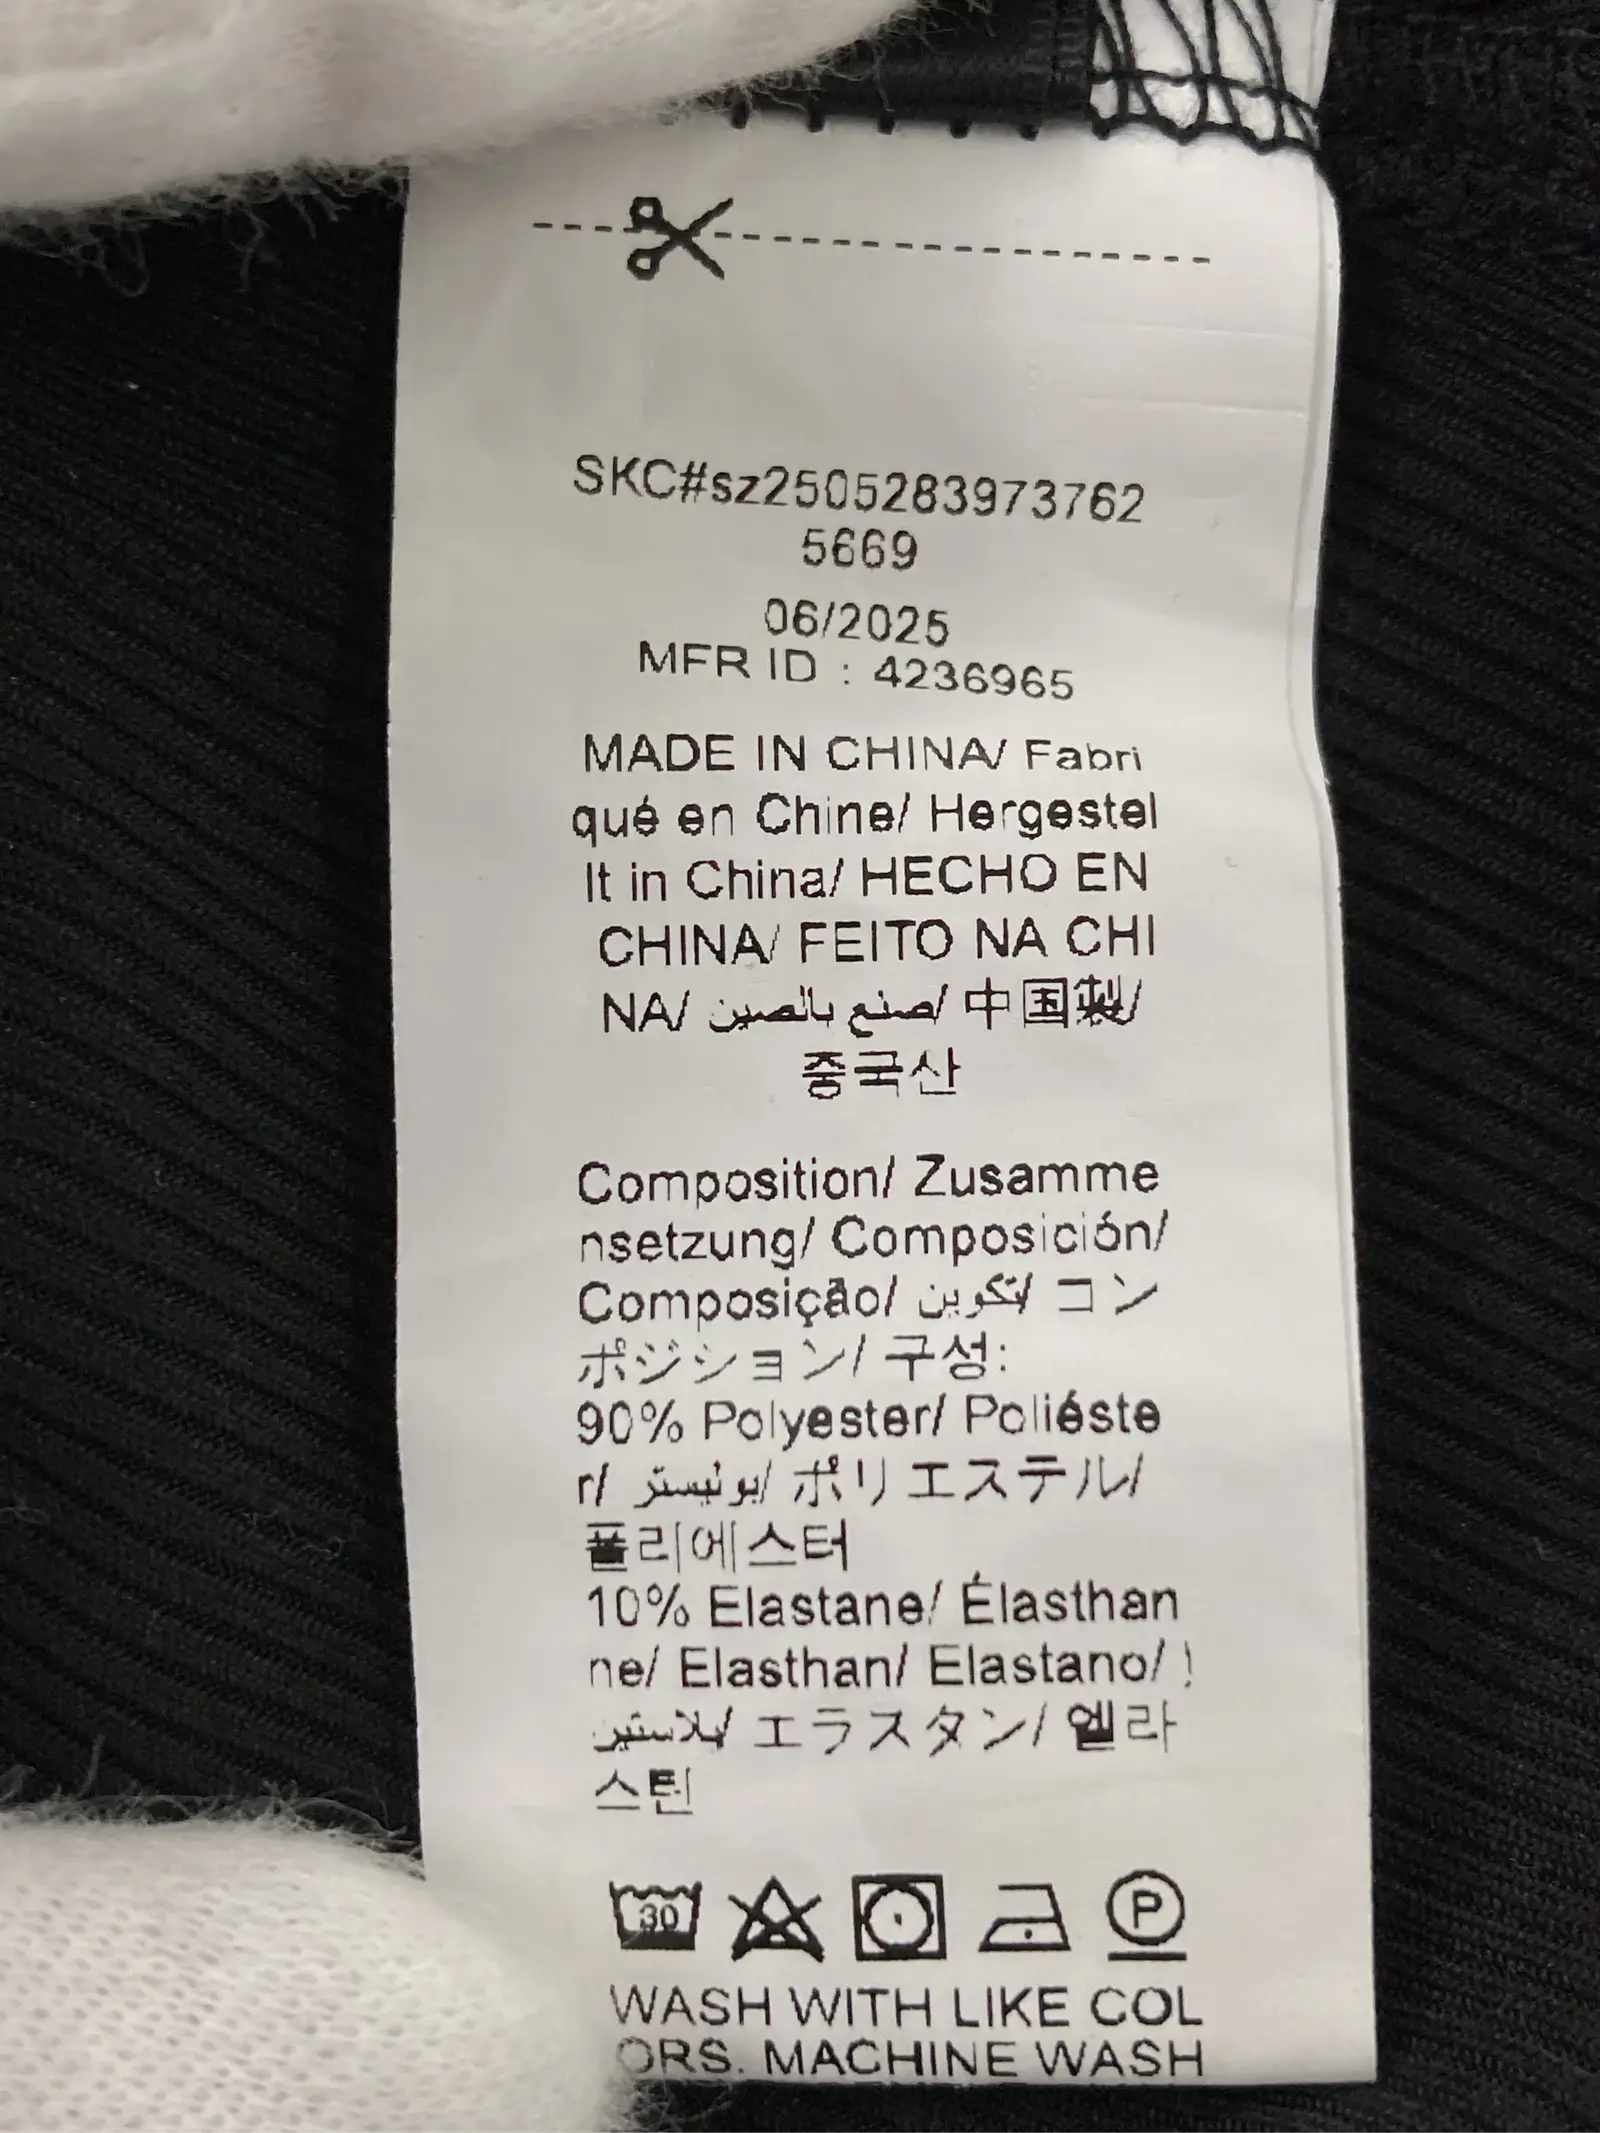 SKC#sz2505283973762
5669
06/2025
MFR ID : 4236965
MADE IN CHINA/ Fabri
qué en Chine/ Hergestel
lt in China/ HECHO EN
CHINA/ FEITO NA CHI
NA/ صنع بالصين/ 中国製/
중국산
Composition/ Zusamme
nsetzung/ Composición/
Composição/ تكوين/ コン
ポジション/ 구성:
90% Polyester/ Poliéste
r/ بوليستر/ ポリエステル/
폴리에스터
10% Elastane/ Élasthan
ne/ Elasthan/ Elastano/
يلاستين/ エラスタン/ 엘라
스틴
30 P
WASH WITH LIKE COL
ORS. MACHINE WASH